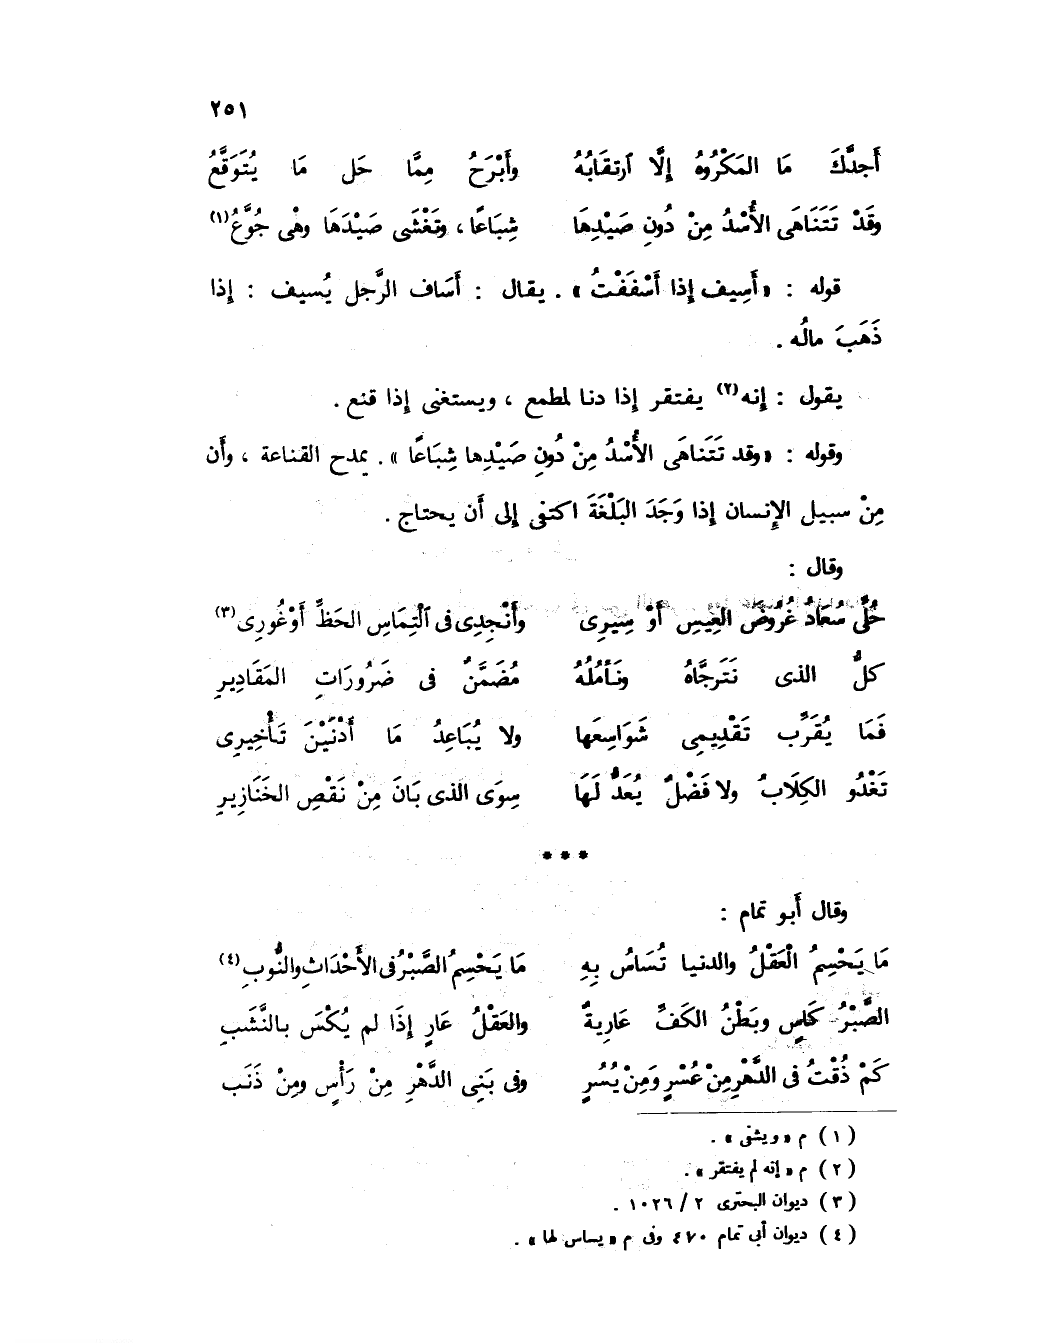 ٢٥١
أَجدَّكَ مَا المَكْرُوهُ إِلَّا ٱرتقَابُهُ وأَبْرَحُ مِمَّا حَل مَا يُتَوَقَّعُ
وقَدْ تَتَنَاهَى الأُسْدُ مِنْ دُونِ صَيْدِهَا شِبَاعًا ، وتَغْشَى صَيْدَهَا وهْى جُوَّعُ(١)
قوله : « أَسِيف إِذا أَسْفَفْتُ » . يقال : أَسَاف الرَّجل يُسيف : إِذا
ذَهَبَ مالُه .
يقول : إِنه(٢) يفتقر إِذا دنا لمطمع ، ويستغنى إِذا قنع .
وقوله : « وقد تَتَناهَى الأُسْدُ مِنْ دُونِ صَيْدِها شِبَاعًا » . يمدح القناعة ، وأَن
مِنْ سبيل الإِنسان إِذا وَجَدَ البَلْغَةَ اكتفى إِلى أَن يحتاج .
وقال :
حُلَّى سُعَادُ غُرُوضَ العِيسِ أَوْ سِيرِى وأَنْجِدِى فى ٱلْتِمَاسِ الحَظِّ أَوْ غُورِى(٣)
كلُّ الذى نَتَرجَّاهُ ونَأْمُلُهُ مُضَمَّنٌ فى ضَرُورَاتِ المَقَادِيرِ
فَمَا يُقَرِّب تَقْدِيمِى شَوَاسِعَها ولا يُبَاعِدُ مَا أَدْنَيْنَ تَأْخِيرِى
تَغْدُو الكِلَابُ ولا فَضْلٌ يُعَدُّ لَهَا سِوَى الذى بَانَ مِنْ نَقْصِ الخَنَازِيرِ
***
وقال أَبو تمام :
مَا يَحْسِمُ الْعَقْلُ والدنيا تُسَاسُ بِهِ مَا يَحْسِمُ الصَّبْرُ فى الأَحْدَاثِ والنُّوبِ(٤)
الصَّبْرُ كَاسٍ وبَطْنُ الكَفِّ عَارِيةٌ والعَقْلُ عَارٍ إِذَا لم يُكْسَ بالنَّشَبِ
كَمْ ذُقْتُ فى الدَّهْرِ مِنْ عُسْرٍ وَمِنْ يُسُرٍ وفى بَنِى الدَّهْرِ مِنْ رَأْس ومِنْ ذَنَب
(١) م « ويثنى » .
(٢) م « إنه لم يفتقر » .
(٣) ديوان البحترى ٢ / ١٠٢٦ .
(٤) ديوان أبى تمام ٤٧٠ وفى م « يساس لها » .